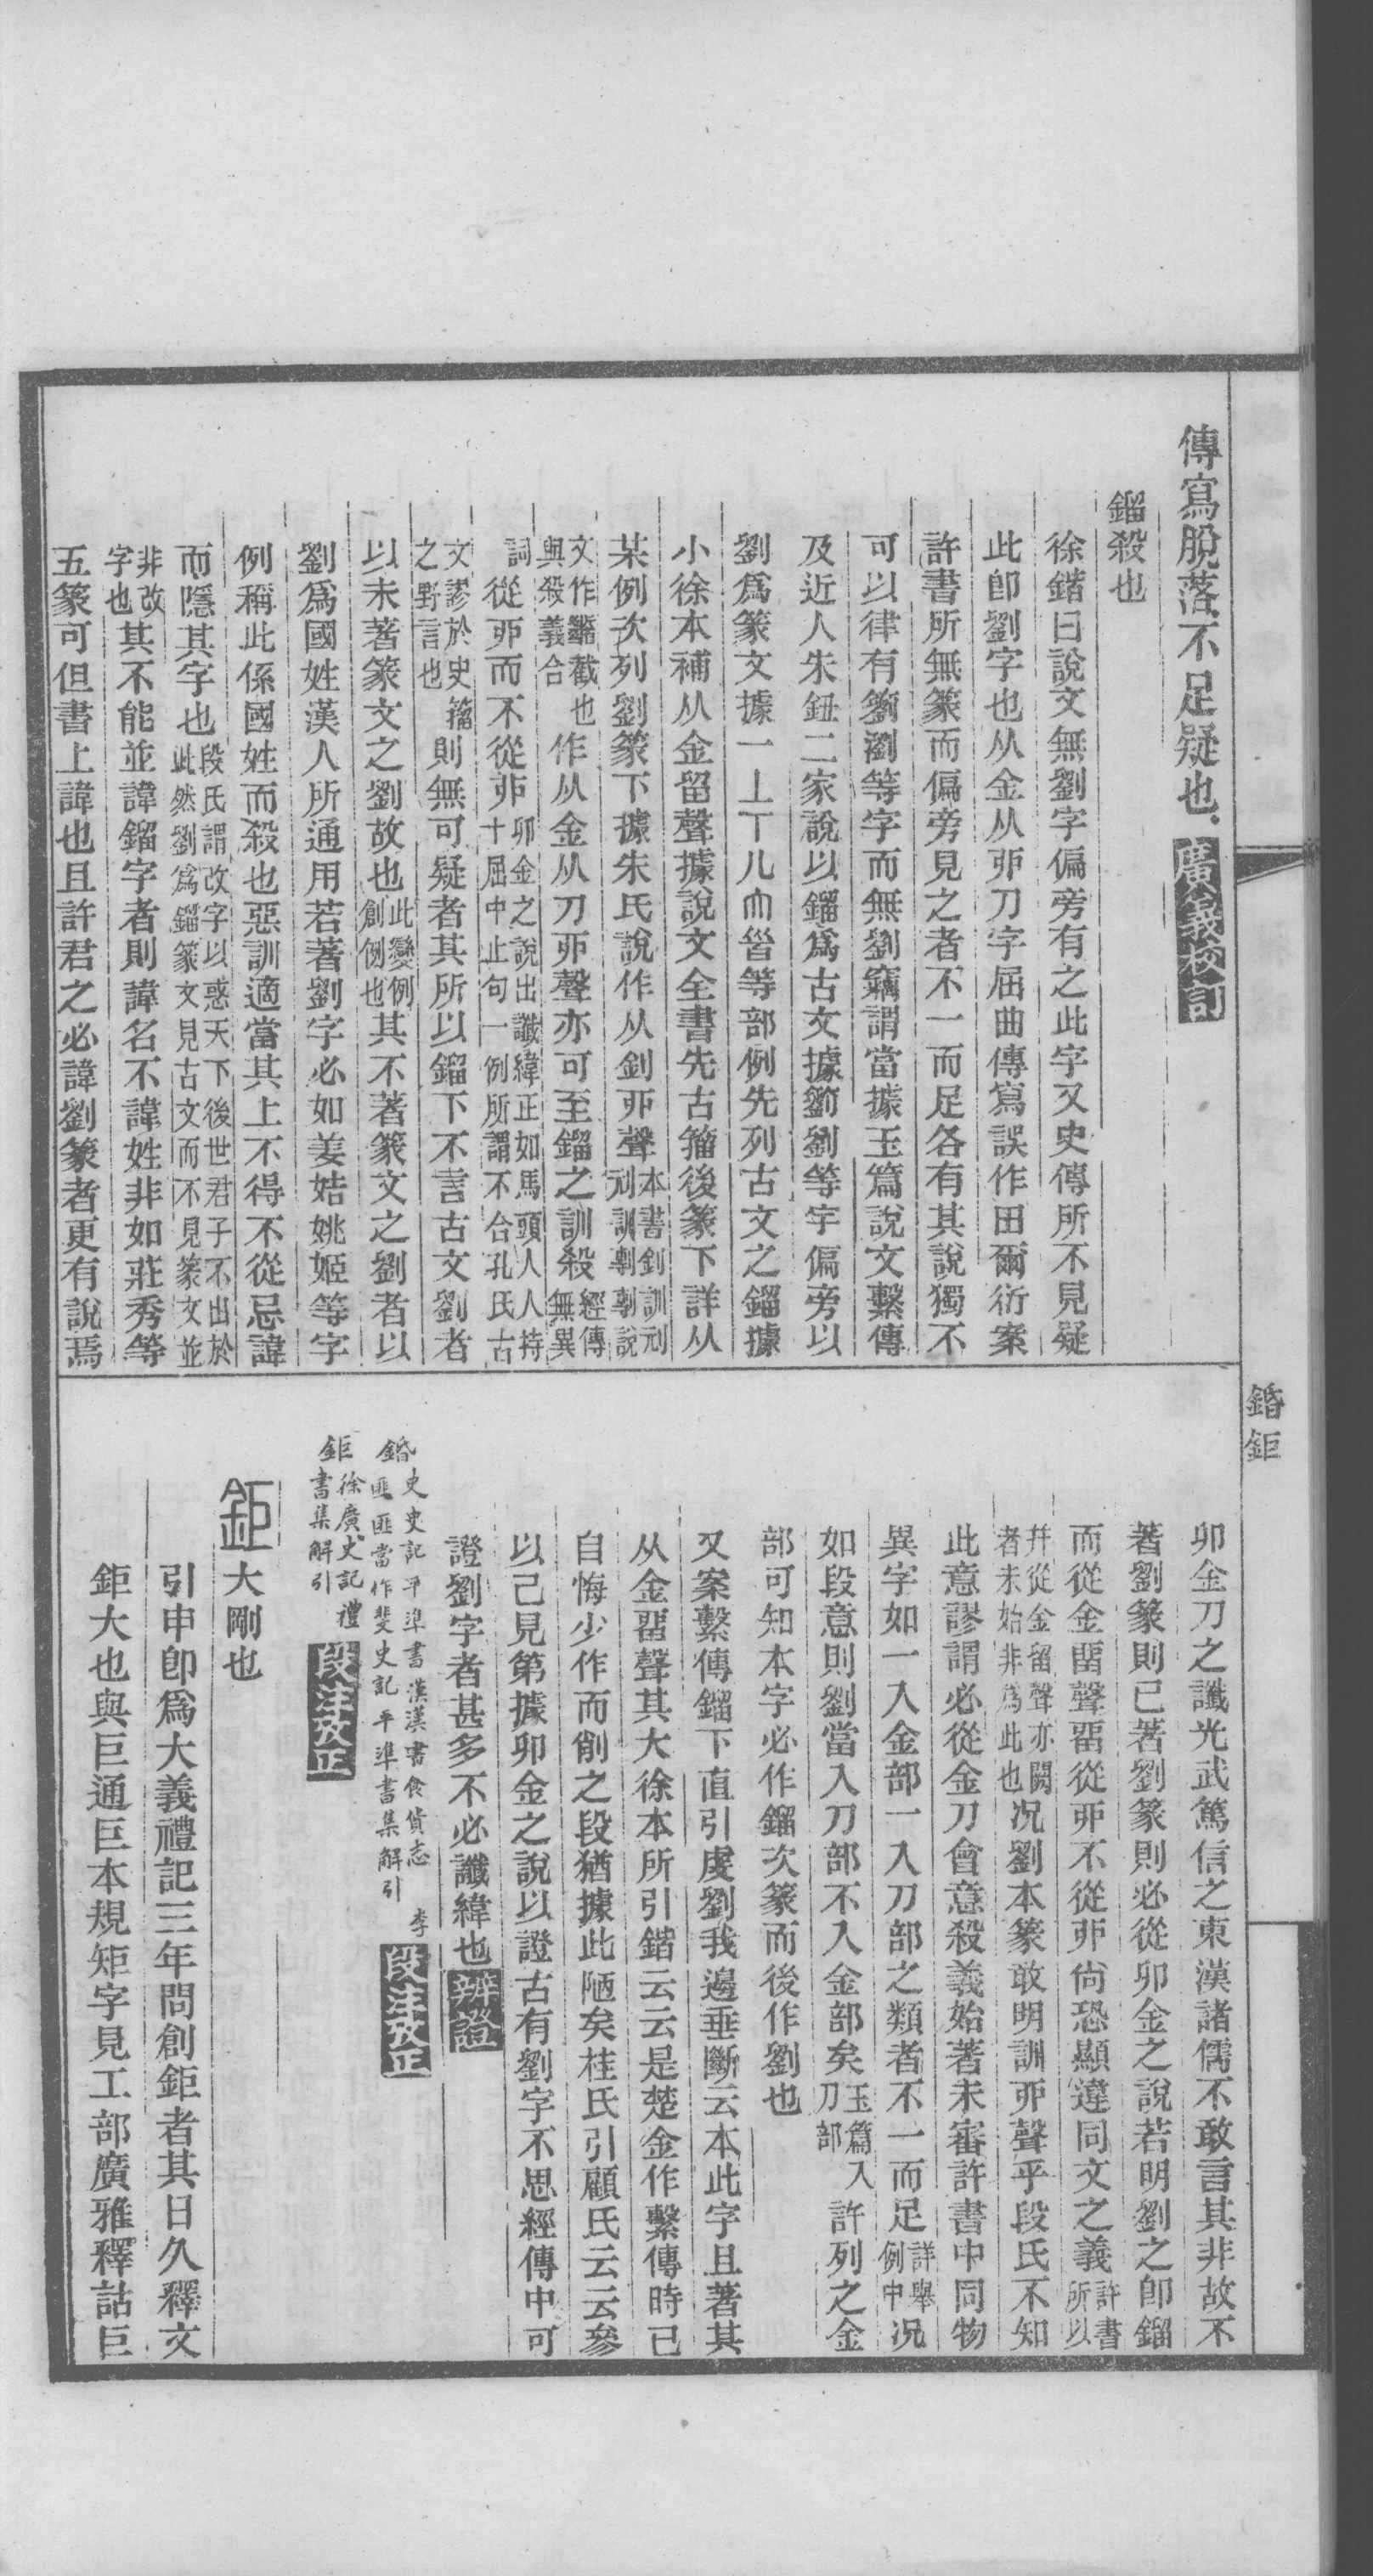 傳寫脫落不足疑也、廣義校訂
鎦殺也
徐鍇曰說文無劉字偏旁有之此字又史傳所不見疑
此卽劉字也从金从丣刀字屈曲傳寫誤作田爾衍案
許書所無篆而偏旁見之者不一而足各有其說獨不
可以律有籀瀏等字而無劉竊謂當據玉篇說文繫傳
及近人朱鈕二家說以鎦爲古文據籀劉等字偏旁以
劉爲篆文據一上丅儿𠕁𥄎等部例先列古文之鎦據
小徐本補从金留聲據說文全書先古籀後篆下詳从
某例次列劉篆下據朱氏說作从釗丣聲本書釗訓刓刓訓剸剸說
文作𢿢截也與殺義合作从金从刀丣聲亦可至鎦之訓殺經傳無異
詞從丣而不從丣卯金之說出讖緯正如馬頭人人持十屈中止句一例所謂不合孔氏古
文謬於史籀之野言也則無可疑者其所以鎦下不言古文劉者
以未著篆文之劉故也此變例創例也其不著篆文之劉者以
劉爲國姓漢人所通用若著劉字必如姜姞姚姬等字
例稱此係國姓而殺也惡訓適當其上不得不從忌諱
而隱其字也段氏謂改字以惑天下後世君子不出於此然劉爲鎦篆文見古文而不見篆文並
非改字也其不能並諱鎦字者則諱名不諱姓非如莊秀等
五篆可但書上諱也且許君之必諱劉篆者更有說焉
鍇鉅
卯金刀之讖光武篤信之東漢諸儒不敢言其非故不
著劉篆則已若劉篆則必從卯金之說若明劉之卽鎦
而從金畱聲畱從丣不從丣尙恐顯違同文之義許書所以
幷從金留聲亦闕者未始非爲此也况劉本篆敢明訓丣聲乎段氏不知
此意謬謂必從金刀會意殺義始著未審許書中同物
異字如一入金部一入刀部之類者不一而足詳舉例中况
如段意則劉當入刀部不入金部矣玉篇入刀部許列之金
部可知本字必作鎦次篆而後作劉也
又案繫傳鎦下直引虔劉我邊垂斷云本此字且著其
从金畱聲其大徐本所引鍇云云是楚金作繫傳時已
自悔少作而削之段猶據此陋矣桂氏引顧氏云云參
以己見第據卯金之說以證古有劉字不思經傳中可
證劉字者甚多不必讖緯也辨證
鍇史史記平準書漢漢書食貨志李匪匪當作斐史記平準書集解引段注攷正
鉅徐廣史記禮書集解引段注攷正
鉅大剛也
引申卽爲大義禮記三年問創鉅者其日久釋文
鉅大也與巨通巨本規矩字見工部廣雅釋詁巨